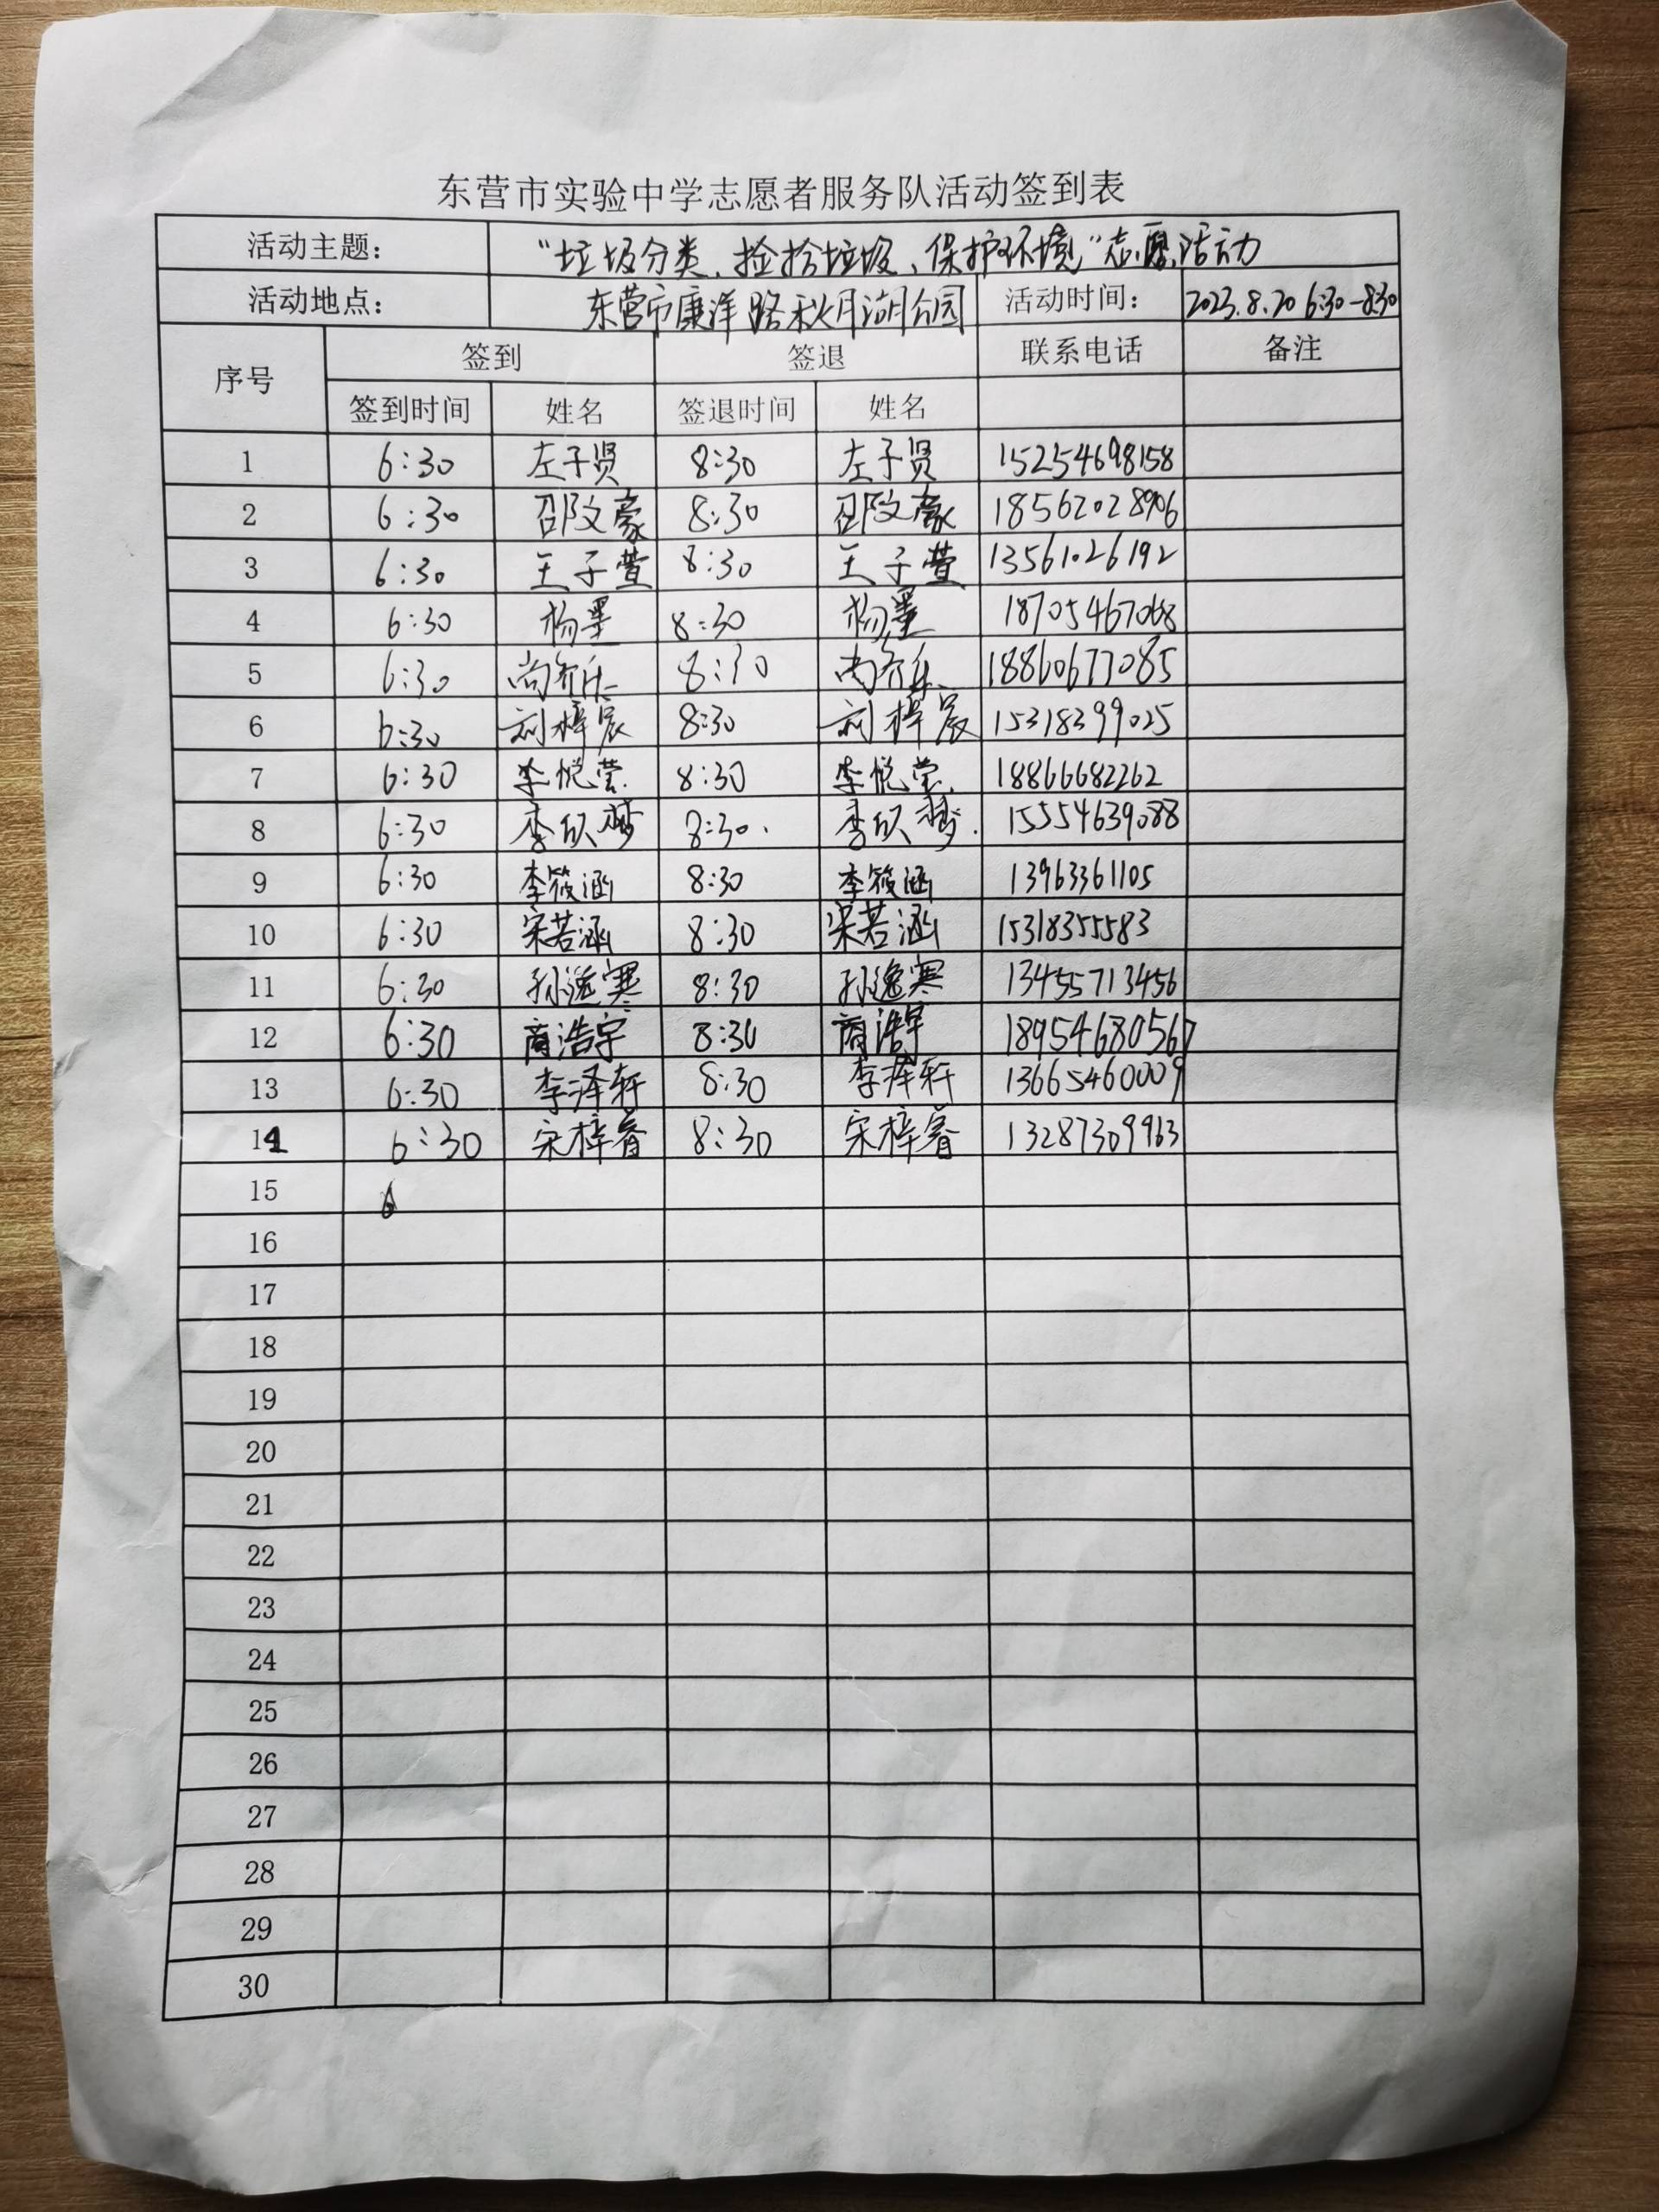 东营市实验中学志愿者服务队活动签到表
活动主题： “垃圾分类、捡拾垃圾、保护环境”志愿活动
活动地点： 东营市康洋路秋月湖公园 活动时间： 2023.8.20 6:30-8:30
序号 签到 签退 联系电话 备注
签到时间 姓名 签退时间 姓名
1 6:30 左子贤 8:30 左子贤 15254698158
2 6:30 邵文豪 8:30 邵文豪 18562028906
3 6:30 王子萱 8:30 王子萱 13561026192
4 6:30 杨墨 8:30 杨墨 18705467068
5 6:30 8:30 18860677085
6 6:30 刘梓宸 8:30 刘梓宸 15318399025
7 6:30 李悦莹 8:30 李悦莹 18866682262
8 6:30 李欣梦 8:30. 李欣梦. 15554639088
9 6:30 李筱涵 8:30 李筱涵 13963361105
10 6:30 宋若涵 8:30 宋若涵 15318355583
11 6:30 孙逸寒 8:30 孙逸寒 13455713456
12 6:30 商浩宇 8:30 商浩宇 18954680567
13 6:30 李泽轩 8:30 李泽轩 13665460009
14 6:30 宋梓睿 8:30 宋梓睿 13287309963
15 6
16
17
18
19
20
21
22
23
24
25
26
27
28
29
30